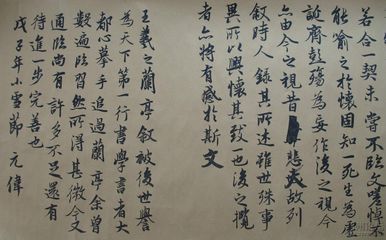 若合一契未嘗不臨文嗟悼不
能喻之於懷固知一死生為虛
誕齊彭殤為妄作後之視今
亦由今之視昔悲夫故列
叙時人錄其所述雖世殊事
異所以興懷其致一也後之攬
者亦將有感於斯文
王羲之蘭亭叙被後世譽
為天下第一行書學書者大
都心摹手追過蘭亭余曾
數遍臨習然所得甚微今又
通臨尚有許多不足還有
待進一步完善也
戊子年小雪節 元偉